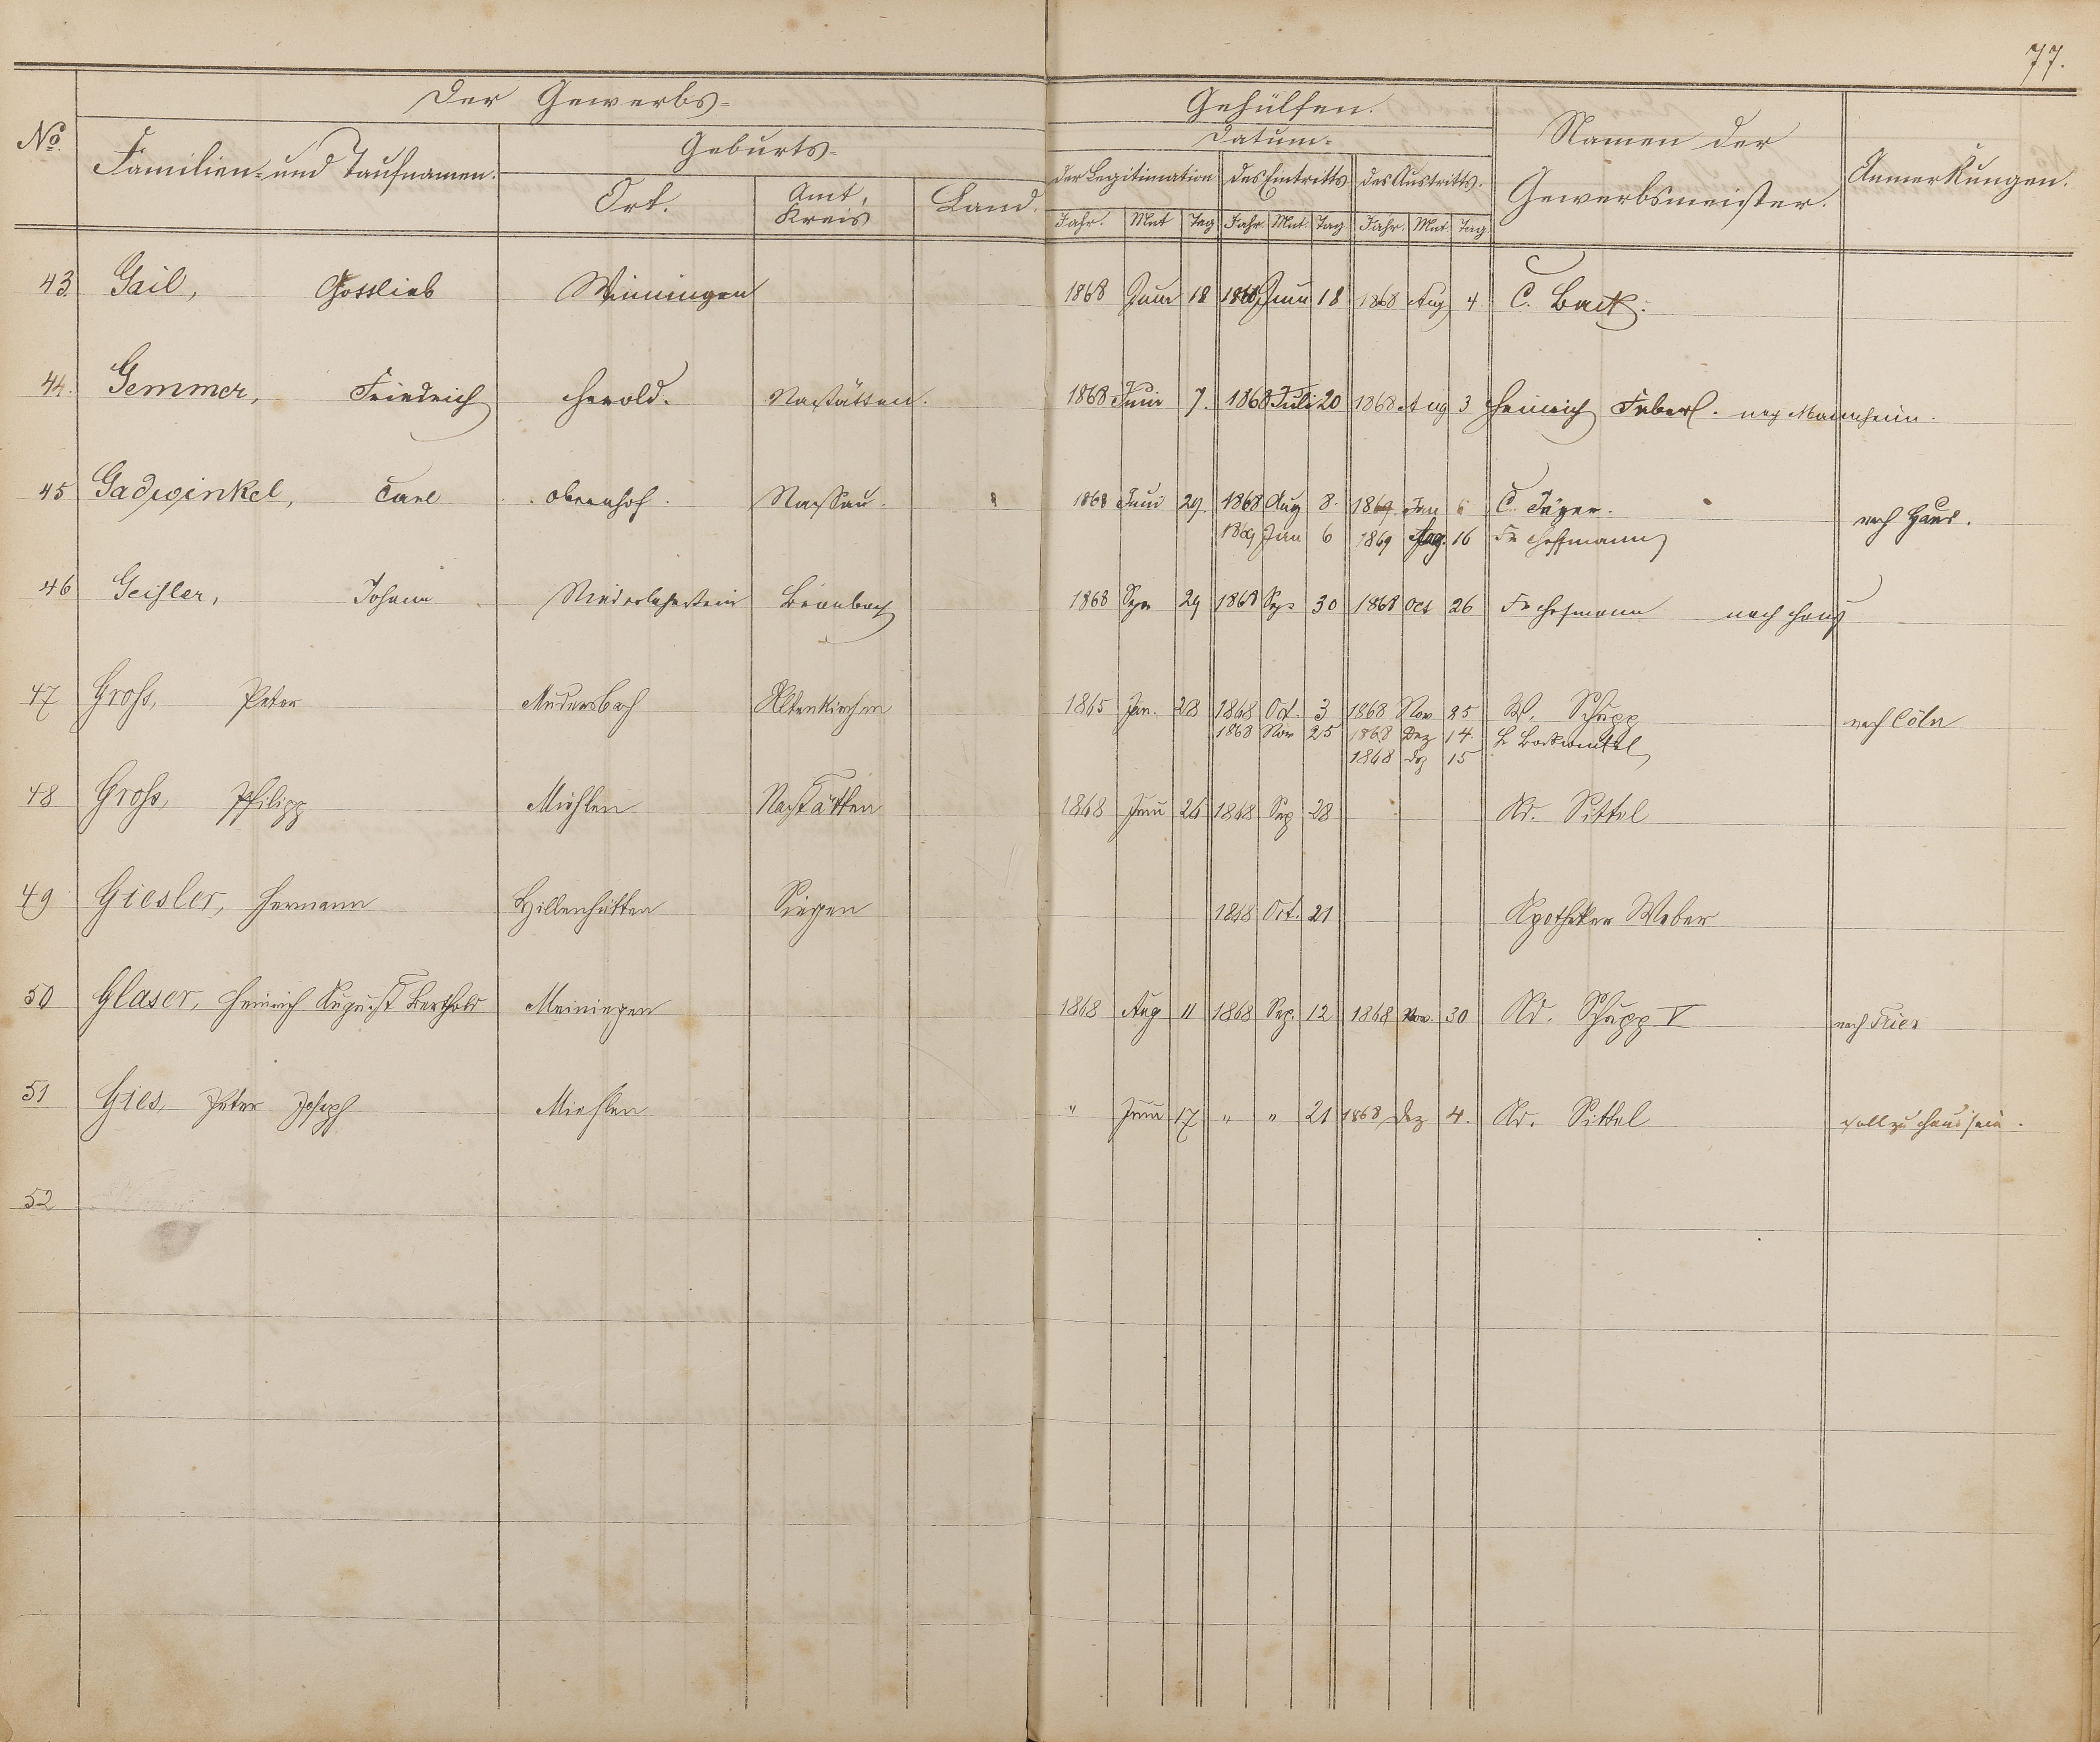 77.
Der Gewerbs-
Gehülfen.
No.
Familien- und Taufnamen.
Geburts-
Ort.
Amt,
Kreis
Land.
Datum-
der Legitimation
des Eintritts
des Austritts.
Jahr. Mnt Tag Jahr. Mnt. Tag Jahr. Mnt. Tag
Namen der
Gewerbsmeister.
Anmerkungen.
43. Gail, Gottlieb Winningen 1868 Juni 18 1868 Juni 18 1868 Aug 4. C. Back.
44. Gemmer, Friedrich Herold. Nastätten. 1868 Juni 7. 1868 Juli 20 1868 Aug 3 Heinrich Faberl. nach Mannheim.
45 Gadewinkel, Carl Obernhof. Nassau. 1868 Juni 29. 1868 Aug 8. 1869 Jan 6 C. Jäger. nach Haus.
1869 Jan 6 1869 Aug. 16 Fr Hoffmann
46 Geisler, Johann Niederlahnstein Braubach 1868 Sep 29 1868 Sep 30 1868 Oct 26 Fr Hofmann nach Haus
47 Groß, Peter Mudersbach Altenkirchen 1865 Jan. 28 1868 Oct. 3 1868 Nov 25 W. Schupp nach Cöln
1868 Nov 25 1868 Dez 14. L Backwinkel
1868 Dez 15
48 Groß, Philipp Miehlen Nastätten 1868 Juni 26 1868 Sep 28 Ad. Sittel
49 Giesler, Hermann Hillenhütten Siegen 1868 Oct. 21 Apotheker Weber
50 Glaser, Heinrich August Berthold Meiningen 1868 Aug 11 1868 Sep. 12 1868 Nov. 30 Ad. Schupp V nach Trier
51 Gies, Peter Joseph Miehlen " Juni 17 " " 21 1868 Dez 4. Ad. Sittel soll zu Haus sein.
52